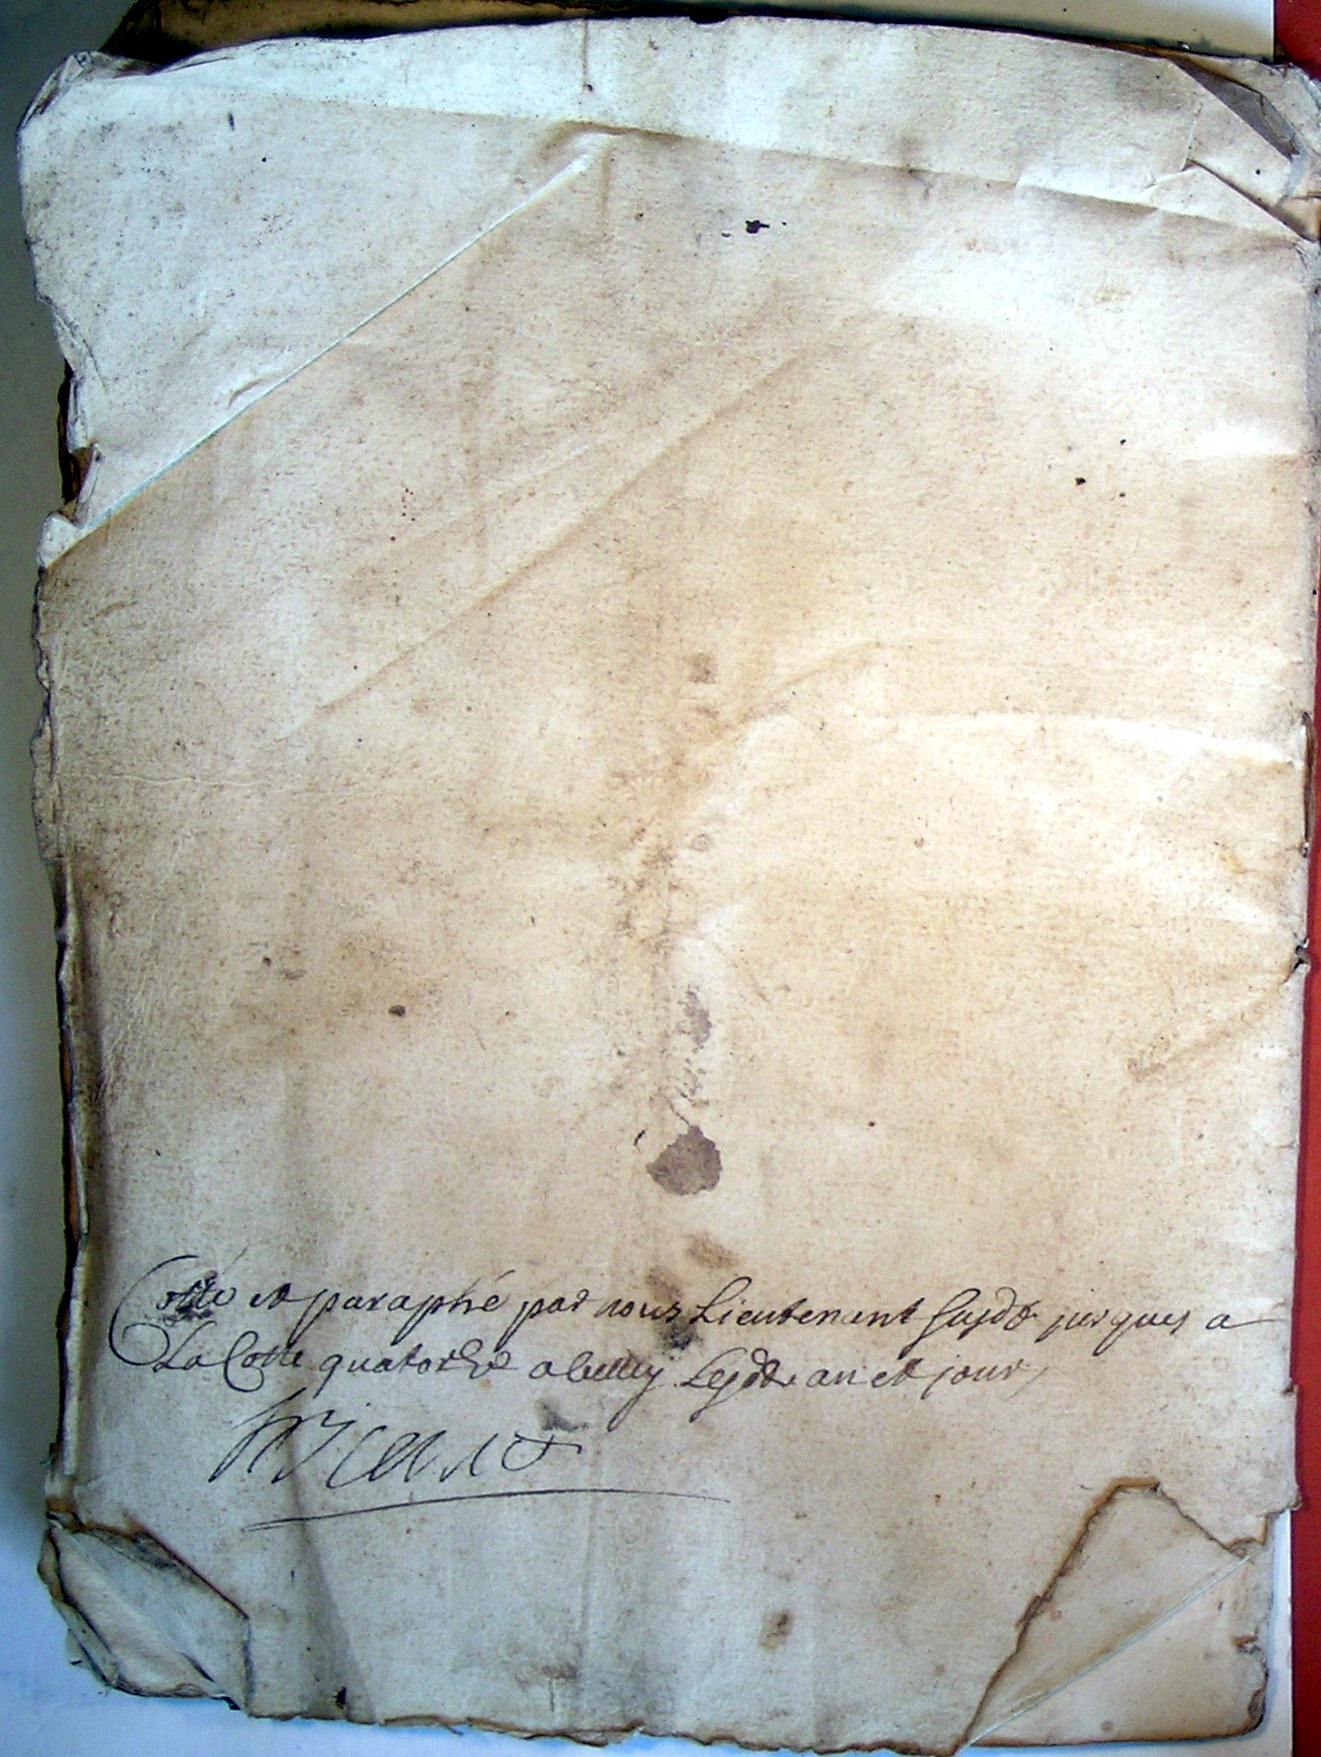 Cotté et paraphé par nous Lieutenant susdt jusques a
La Cotte quatorze a Lesdt an et jour